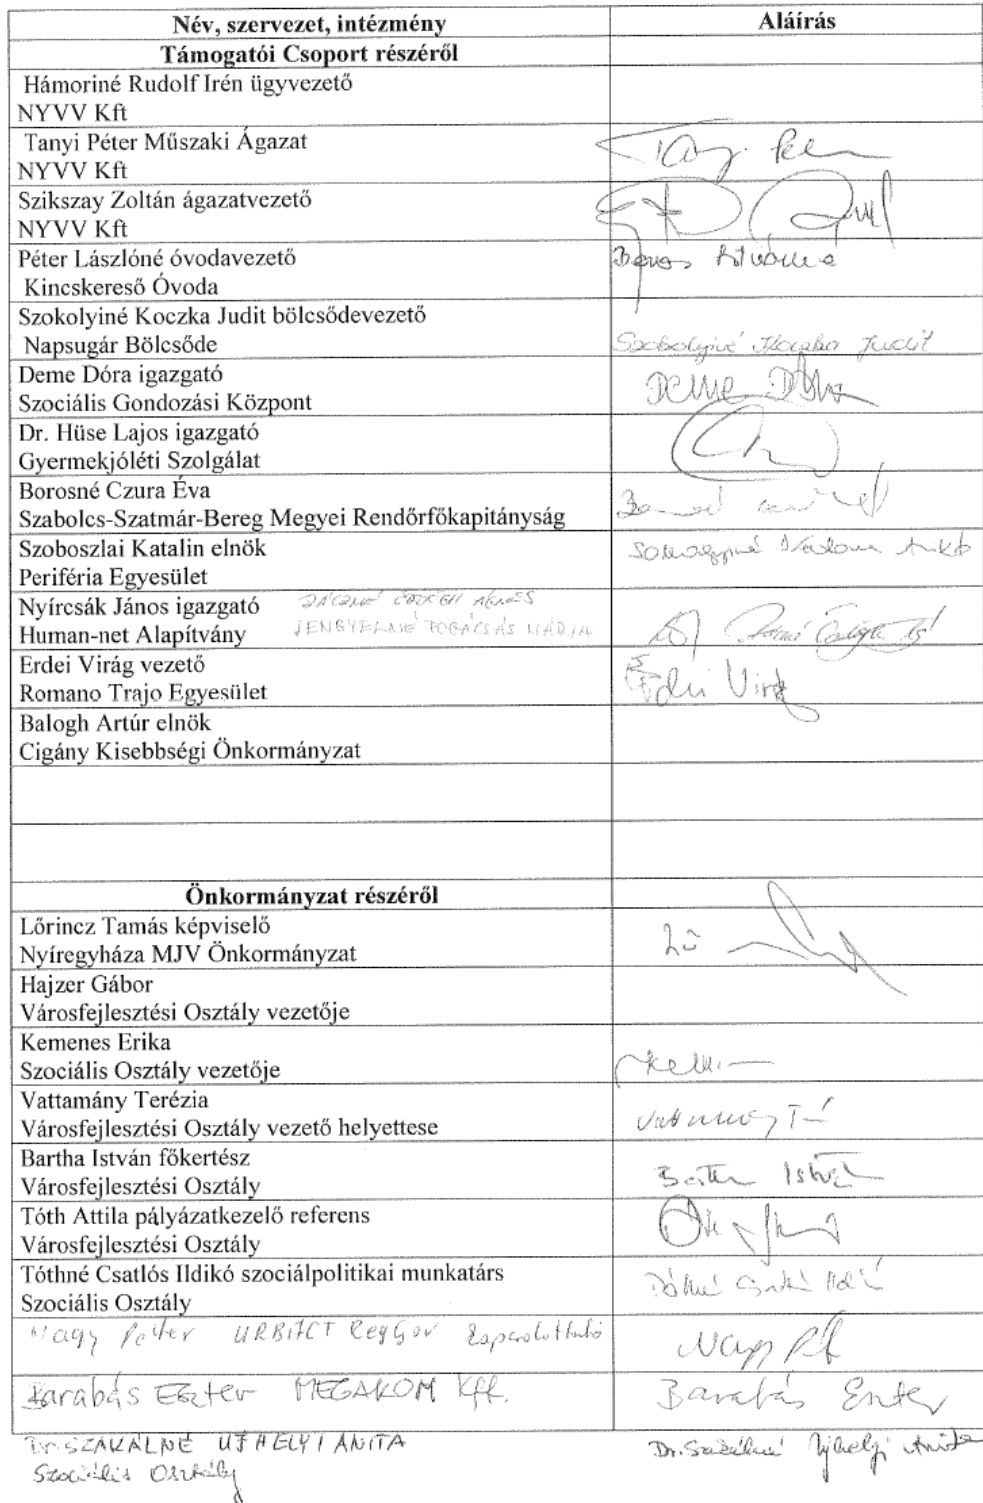 Név, szervezet, intézmény
Aláírás
Támogatói Csoport részéről
Hámoriné Rudolf Irén ügyvezető
NYVV Kft
Tanyi Péter Műszaki Ágazat
NYVV Kft
Szikszay Zoltán ágazatvezető
NYVV Kft
Péter Lászlóné óvodavezető
Kincskereső Óvoda
Szokolyiné Koczka Judit bölcsődevezető
Napsugár Bölcsőde
Szokolyiné Koczka Judit
Deme Dóra igazgató
Szociális Gondozási Központ
Deme Dóra
Dr. Hüse Lajos igazgató
Gyermekjóléti Szolgálat
Borosné Czura Éva
Szabolcs-Szatmár-Bereg Megyei Rendőrfőkapitányság
Szoboszlai Katalin elnök
Periféria Egyesület
Nyírcsák János igazgató
Human-net Alapítvány
LENGYELNÉ POGÁCSÁS MÁRIA
Erdei Virág vezető
Romano Trajo Egyesület
Erdei Virág
Balogh Artúr elnök
Cigány Kisebbségi Önkormányzat
Önkormányzat részéről
Lőrincz Tamás képviselő
Nyíregyháza MJV Önkormányzat
Hajzer Gábor
Városfejlesztési Osztály vezetője
Kemenes Erika
Szociális Osztály vezetője
Vattamány Terézia
Városfejlesztési Osztály vezető helyettese
Bartha István főkertész
Városfejlesztési Osztály
Bartha István
Tóth Attila pályázatkezelő referens
Városfejlesztési Osztály
Tóthné Csatlós Ildikó szociálpolitikai munkatárs
Szociális Osztály
Nagy Péter URBACT RegGov kapcsolattartó
Nagy Pé
Barabás Eszter MEGAKOM Kft.
Barabás Eszter
Dr. SZAKÁLNÉ UJHELYI ANITA
Szociális Osztály
Dr. Szakálné Ujhelyi Anita